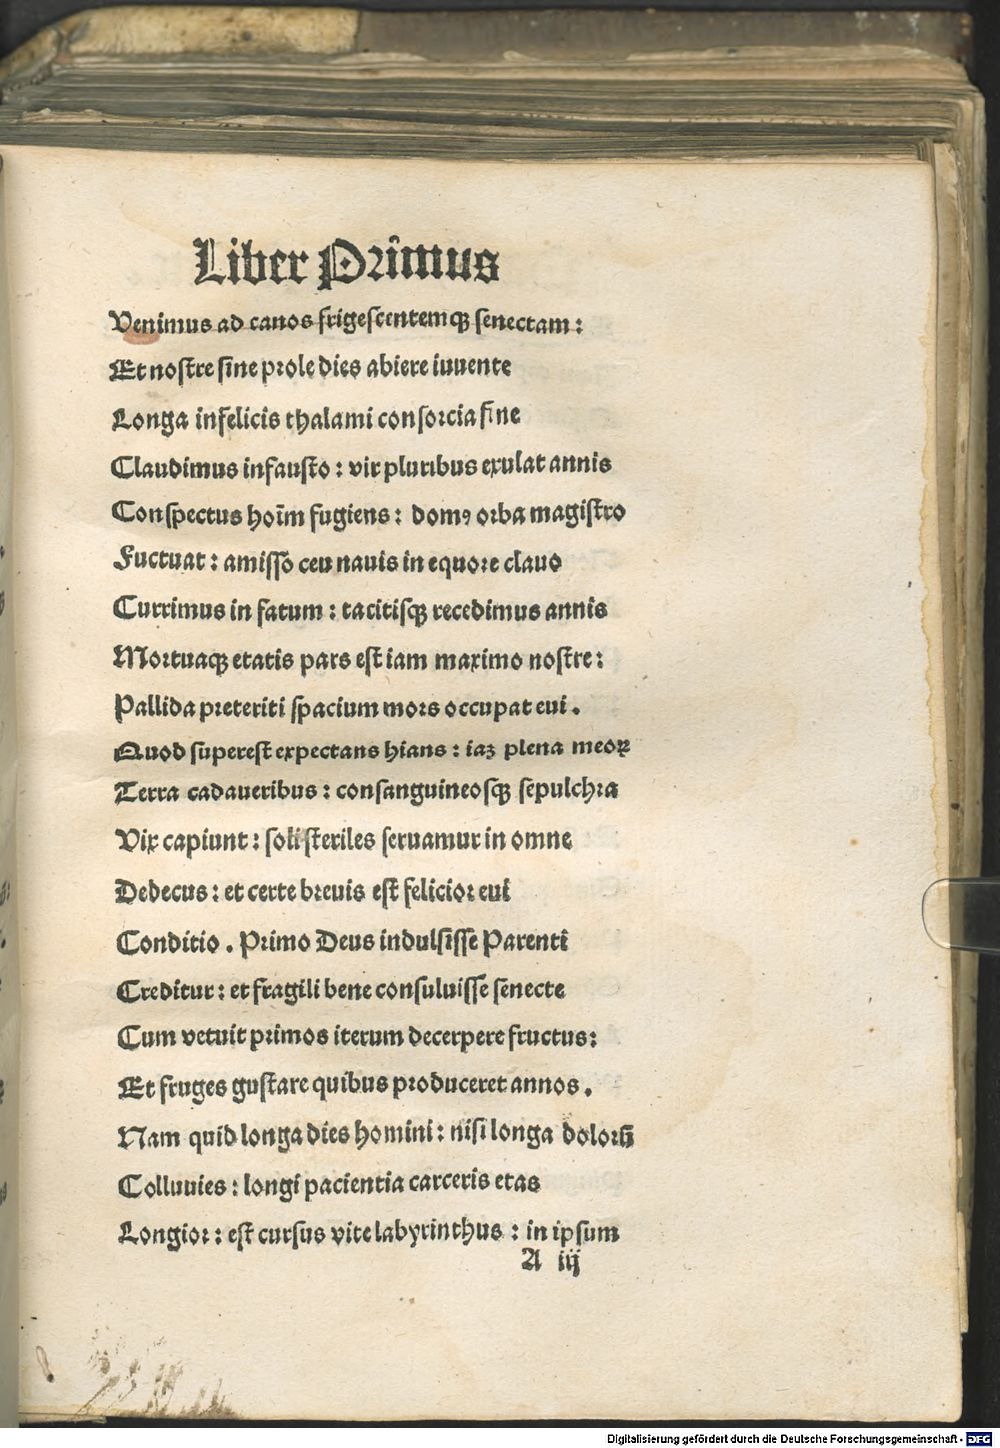 Liber Primus
Venimus ad canos frigescentemqꝫ senectam:
Et nostre sine prole dies abiere iuuente
Longa infelicis thalami consorcia fine
Claudimus infausto: vir pluribus exulat annis
Conspectus hoīm fugiens: domꝰ orba magistro
Fuctuat: amisso ceu nauis in equore clauo
Currimus in fatum: tacitisqꝫ recedimus annis
Mortuaqꝫ etatis pars est iam maximo nostre:
Pallida preteriti spacium mors occupat eui.
Quod superest expectans hians: iaꝫ plena meoꝝ
Terra cadaueribus: consanguineosqꝫ sepulchra
Vix capiunt: soli steriles seruamur in omne
Dedecus: et certe breuis est felicior eui
Conditio. Primo Deus indulsisse Parenti
Creditur: et fragili bene consuluisse senecte
Cum vetuit primos iterum decerpere fructus:
Et fruges gustare quibus produceret annos.
Nam quid longa dies homini: nisi longa dolorū
Colluuies: longi pacientia carceris etas
Longior: est cursus vite labyrinthus: in ipsum
A iij
Digitalisierung gefördert durch die Deutsche Forschungsgemeinschaft - DFG